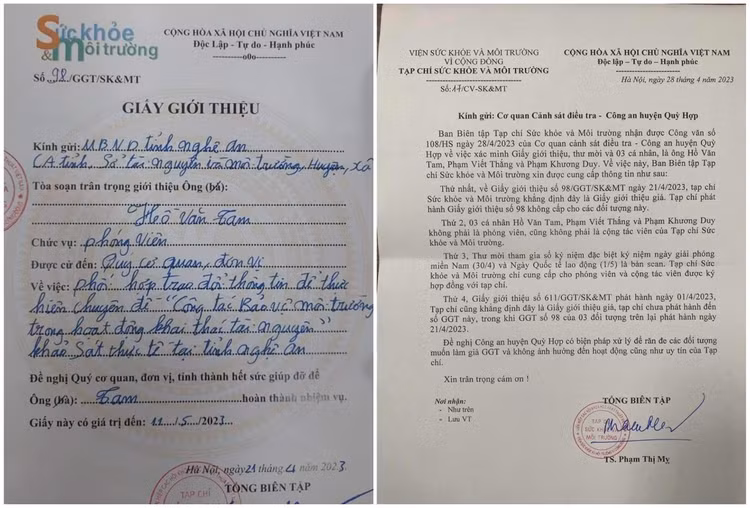 Sức khỏe
& Môi trường
CỘNG HÒA XÃ HỘI CHỦ NGHĨA VIỆT NAM
Độc Lập - Tự do - Hạnh phúc
--------o0o--------
Số 98/GGT/SK&MT
GIẤY GIỚI THIỆU
Kính gửi: U.B.N.D tỉnh nghệ an
CA tỉnh, Sở tài nguyên và môi trường, Huyện, xã
Tòa soạn trân trọng giới thiệu Ông (bà):
Hồ Văn Tam
Chức vụ: phóng viên
Được cử đến: Qúy cơ quan, đơn vị
Về việc: phối hợp trao đổi thông tin để thực
hiện chuyên đề "Công tác Bảo vệ môi trường
trong hoạt động khai thác tài nguyên"
khảo sát thực tế tại tỉnh nghệ an
Đề nghị Quý cơ quan, đơn vị, tỉnh thành hết sức giúp đỡ để
Ông (bà): Tam hoàn thành nhiệm vụ.
Giấy này có giá trị đến: 11/5/2023
Hà Nội, ngày 21 tháng 4 năm 2023
TỔNG BIÊN TẬP
TẠP CHÍ
VIỆN SỨC KHỎE VÀ MÔI TRƯỜNG
VÌ CỘNG ĐỒNG
TẠP CHÍ SỨC KHỎE VÀ MÔI TRƯỜNG
Số:17/CV-SK&MT
CỘNG HÒA XÃ HỘI CHỦ NGHĨA VIỆT NAM
Độc lập – Tự do – Hạnh phúc
Hà Nội, ngày 28 tháng 4 năm 2023
Kính gửi: Cơ quan Cảnh sát điều tra - Công an huyện Quỳ Hợp
Ban Biên tập Tạp chí Sức khỏe và Môi trường nhận được Công văn số
108/HS ngày 28/4/2023 của Cơ quan cảnh sát điều tra - Công an huyện Quỳ
Hợp về việc xác minh Giấy giới thiệu, thư mời và 03 cá nhân, là ông Hồ Văn
Tam, Phạm Viết Thắng và Phạm Khương Duy. Về việc này, Ban Biên tập Tạp
chí Sức khỏe và Môi trường xin được cung cấp thông tin như sau:
Thứ nhất, về Giấy giới thiệu số 98/GGT/SK&MT ngày 21/4/2023, tạp chí
Sức khỏe và Môi trường khẳng định đây là Giấy giới thiệu giả. Tạp chí phát
hành Giấy giới thiệu số 98 không cấp cho các đối tượng này.
Thứ 2, 03 cá nhân Hồ Văn Tam, Phạm Viết Thắng và Phạm Khương Duy
không phải là phóng viên, cũng không phải là cộng tác viên của Tạp chí Sức
khỏe và Môi trường.
Thứ 3, Thư mời tham gia số kỷ niệm đặc biệt kỷ niệm ngày giải phóng
miền Nam (30/4) và Ngày Quốc tế lao động (1/5) là bản scan. Tạp chí Sức
khỏe và Môi trường chỉ cung cấp cho phóng viên và cộng tác viên được ký
hợp đồng với tạp chí.
Thứ 4, Giấy giới thiệu số 611/GGT/SK&MT phát hành ngày 01/4/2023,
Tạp chí cũng khẳng định đây là Giấy giới thiệu giả, tạp chí chưa phát hành đến
số GGT này, trong khi GGT số 98 của 03 đối tượng trên lại phát hành ngày
21/4/2023.
Đề nghị Công an huyện Quỳ Hợp có biện pháp xử lý để răn đe các đối tượng
muốn làm giả GGT và không ảnh hưởng đến hoạt động cũng như uy tín của Tạp
chí.
Xin trân trọng cảm ơn !
Nơi nhận:
- Như trên
- Lưu VT
TỔNG BIÊN TẬP
TẠP CHÍ
SỨC KHỎE
MÔI TRƯỜNG
TS. Phạm Thị Mỵ